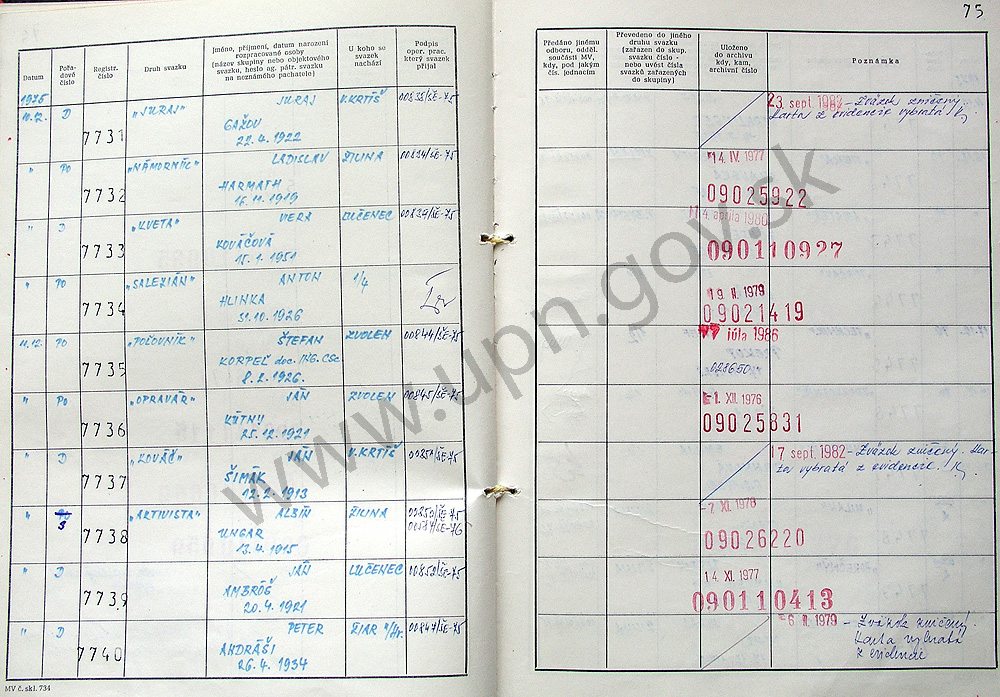 75
Datum
Pořadové číslo
Registr. číslo
Druh svazku
Jméno, příjmení, datum narození
rozpracované osoby
(název skupiny nebo objektového
svazku, heslo ag. pátr. svazku
na neznámého pachatele)
U koho se
svazek
nachází
Podpis
oper. prac.
který svazek
přijal
Předáno jinému
odboru, odděl.
součásti MV,
kdy, pod jakým
čís. jednacím
Převedeno do jiného
druhu svazku
(zařazen do skup.
svazku číslo -
nebo uvést čísla
svazků zařazených
do skupiny)
Uloženo
do archivu
kdy, kam,
archivní číslo
Poznámka
1975
10.12. D 7731 „JURAJ" JURAJ V.KRTÍŠ
GAŽOV
22.4.1922
23. sept. 1982 - Zväzok zničený.
Karta z evidencie vybratá
" PO 7732 „NÁMORNÍK" LADISLAV ŽILINA 00834/ŠE-75
HARMATH
16.11.1919
14. IV. 1977
09025922
" D 7733 „KVETA" VERA LUČENEC 00837/ŠE-75
KOVÁČOVÁ
15.1.1951
4. apríla 1980
090110927
" PO 7734 „SALEZIÁN" ANTON 1/4
HLINKA
31.10.1926
19. II. 1979
09021419
11.12. PO 7735 „POĽOVNÍK" ŠTEFAN ZVOLEN 00844/ŠE-75
KORPEĽ doc. ING. CSc.
8.2.1926.
júla 1986
028650
" PO 7736 „OPRAVÁR" JÁN ZVOLEN 00845/ŠE-75
KÚTNY
25.12.1921
-1. XII. 1976
09025831
" D 7737 „KOVÁČ" JÁN V.KRTÍŠ
ŠIMÁK
12.2.1913
17 sept. 1982 - Zväzok zničený. Kar-
ta vybratá z evidencie.
" S 7738 „AKTIVISTA" ALBÍN ŽILINA
UNGAR
13.4.1915
-7. XI. 1978
09026220
" D 7739 JÁN LUČENEC 00852/ŠE-75
AMBRÓŠ
20.4.1921
14. XI. 1977
090110413
" D 7740 PETER ŽIAR n/Hr. 00847/ŠE-75
ANDRÁŠI
26.4.1934
-6 II. 1979 - Zväzok zničený
Karta vybratá
z evidencie
MV č. skl. 734
www.upn.gov.sk